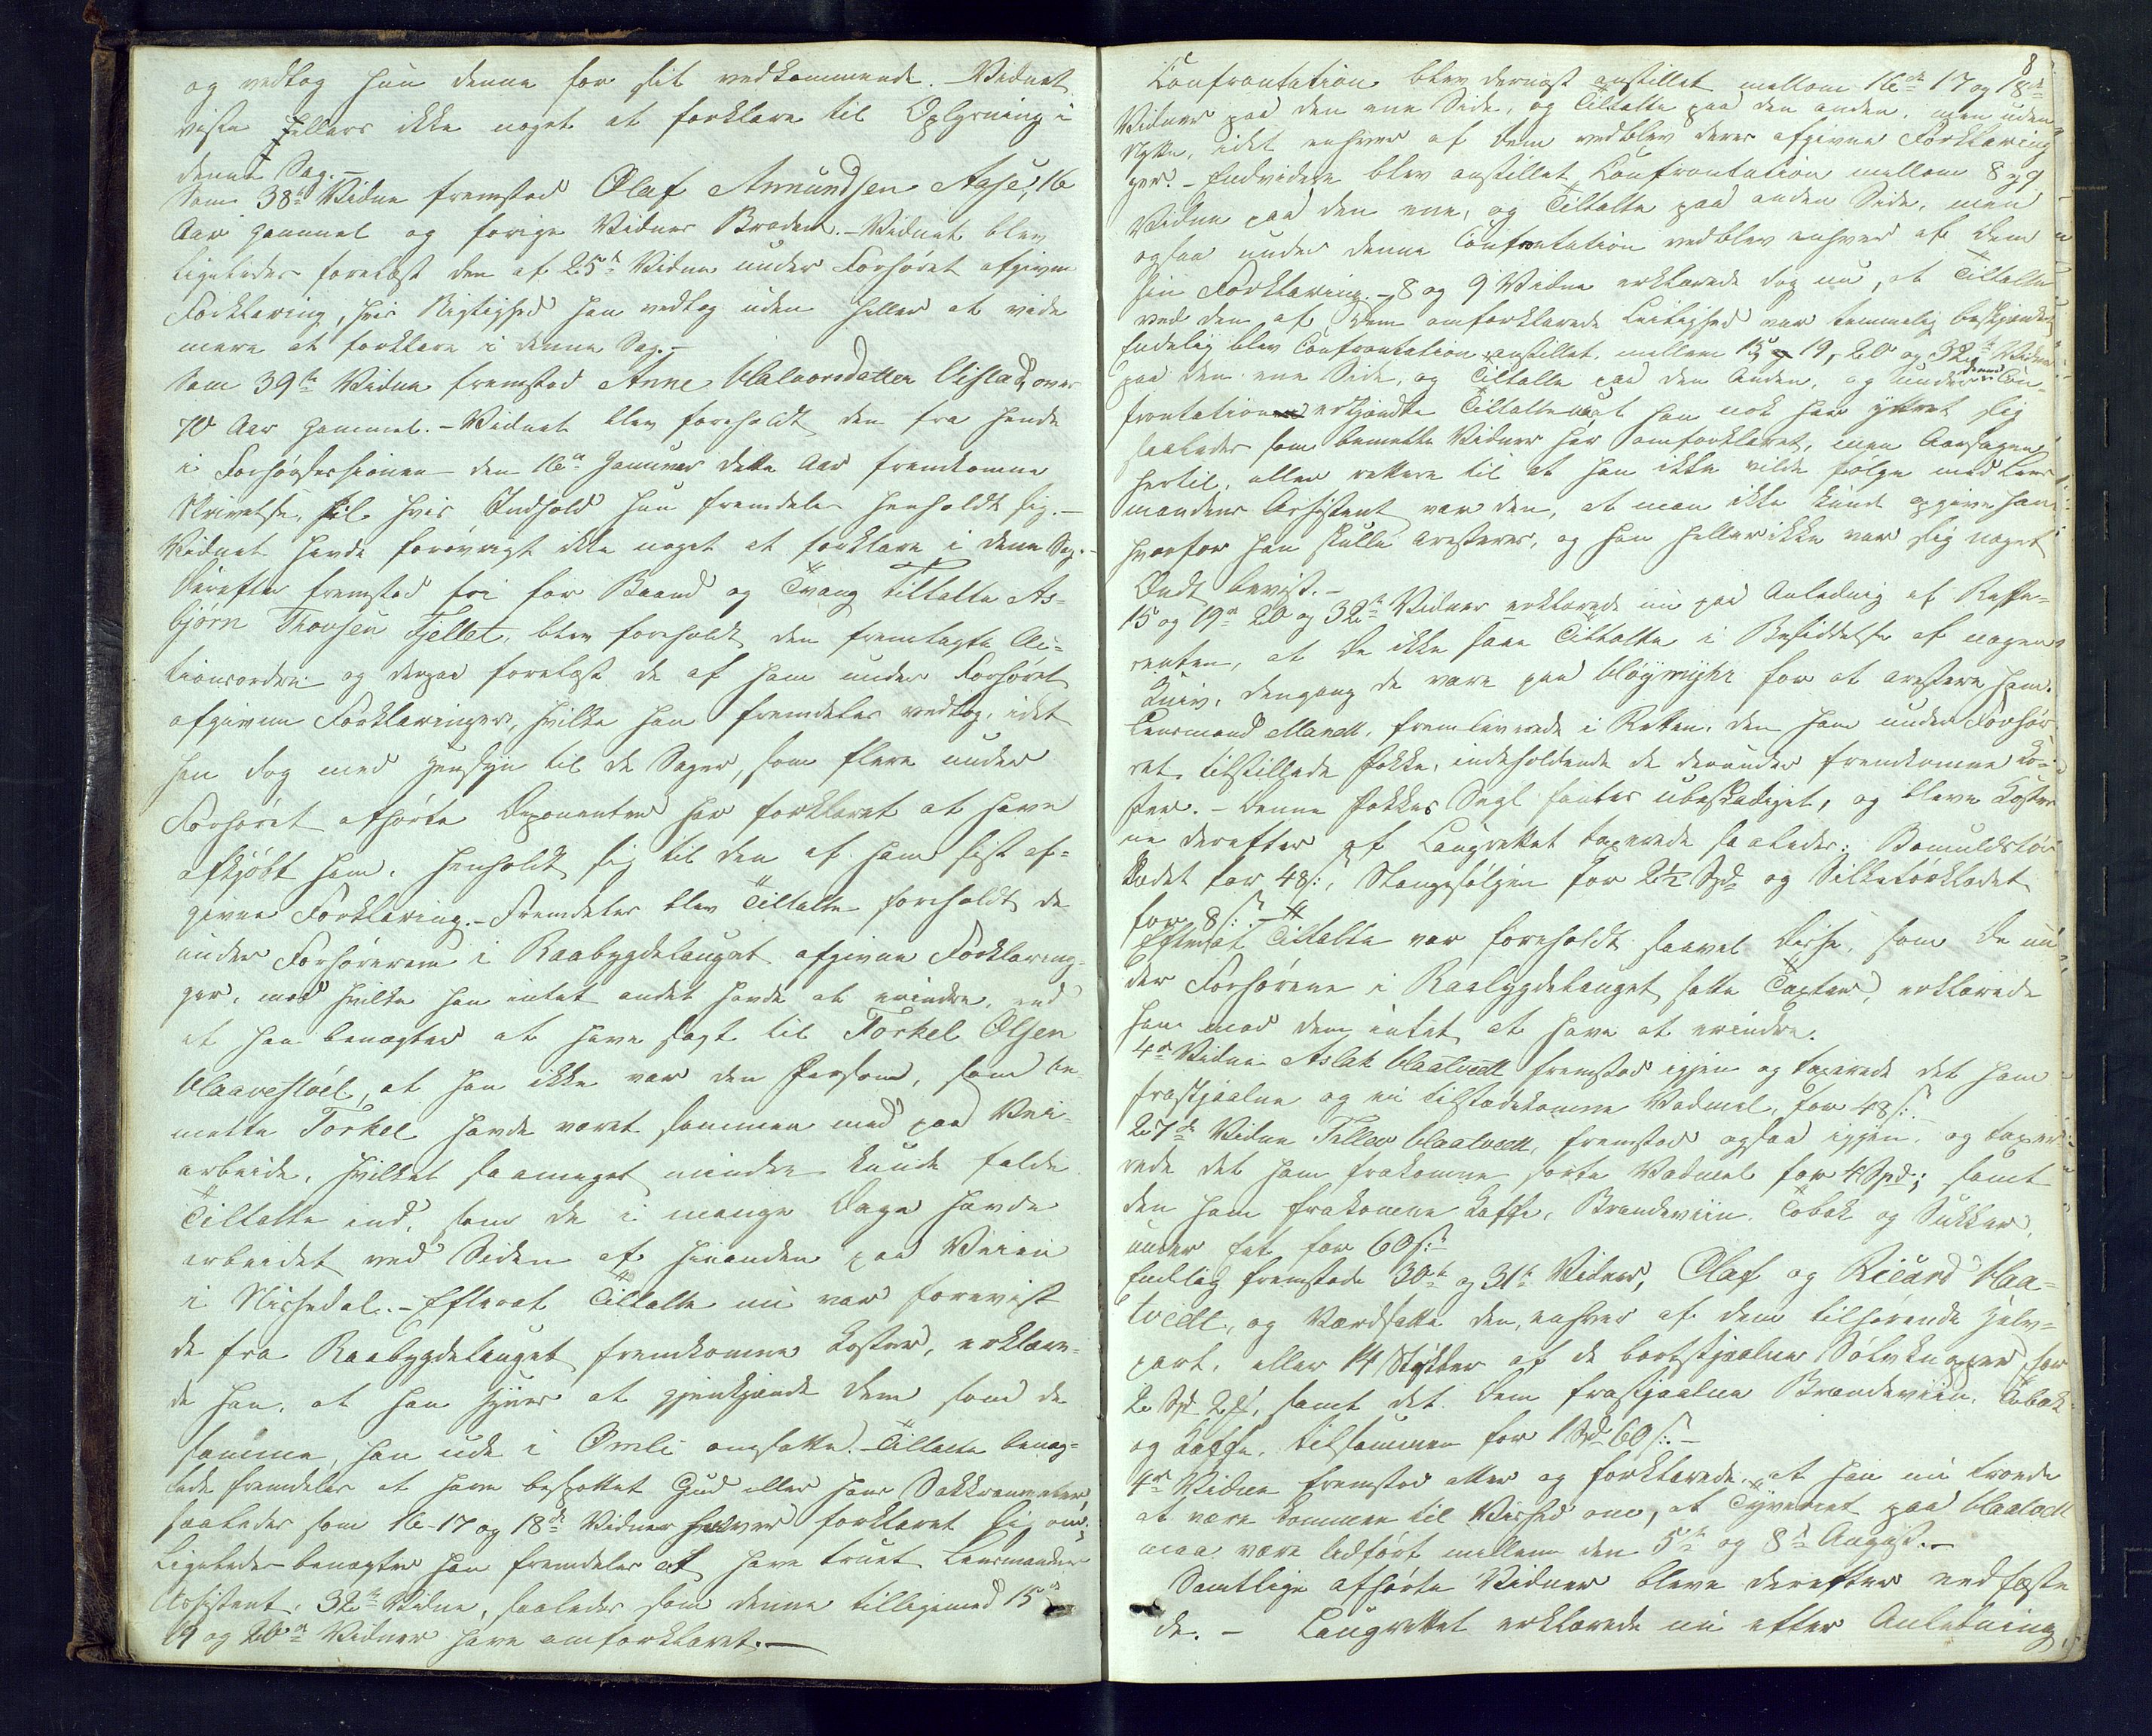 og vedtog hun denne for sit vedkommende. – Vidnet
viste hellers ikke noget at forklare til Oplysning i
denne Sag. –
Som 38te Vidne fremstod Olaf Amundsen Aase, 16
Aar gammel og forrige Vidnes Broder. – Vidnet blev
ligeledes forelæst den af 25de Vidne under Forhøret afgivne
Forklaring, hvis Rigtighed han vedtog uden heller at vide
mere at forklare i denne Sag. –
Som 39te Vidne fremstod Anne Halvorsdatter Vistad, over
70 Aar gammel. – Vidnet blev foreholdt den fra hende
i Forhørssessionen den 16de Januar dette Aar fremkomne
Skrivelse, til hvis Indhold hun fremdeles henholdt sig. –
Vidnet havde forøvrigt ikke noget at forklare i denne Sag. –
Derefter fremstod fri for Baand og Tvang Tiltalte As-
bjørn Thorsen Fjellet, blev foreholdt den fremlagte Ac-
tionsordre og derpaa forelæst de af ham under Forhøret
afgivne Forklaringer, hvilke han fremdeles vedtog, idet
han dog med Hensyn til de Sager, som flere under
Forhøret afhørte Deponenter har forklaret at have
afkjøbt ham, henholdt sig til den af ham sist af-
givne Forklaring. – Fremdeles blev Tiltalte foreholdt de
under Forhørerne i Raabygdelauget afgivne Forklarin-
ger, mod hvilke han intet andet havde at erindre, end
at han benægter at have sagt til Torkel Olsen
Haavestøel, at han ikke var den Person, som be-
meldte Torkel havde været sammen med paa Vei-
arbeide, hvilket saameget mindre kunde falde
Tiltalte ind, som de i mange Dage havde
arbeidet ved Siden af hinanden paa Veien
i Nissedal. – Efterat Tiltalte nu var forevist
de fra Raabygdelauget fremkomne Koster, erklære-
de han, at han synes at gjenkjende dem som de
samme, han ude i Omli omsatte. – Tiltalte benæg-
tede fremdeles at have bespottet Gud eller hans Sakkramenter,
saaledes som 16-17 og 18de Vidner har forklaret sig om;
Ligeledes benægter han fremdeles at have truet Lensmandens
Assistent, 32te Vidne, saaledes som denne tilligemed 15de
19 og 20de Vidner have omforklaret. –
8
Confrontation blev dernæst anstillet mellem 16de 17 og 18de
Vidner paa den ene Side, og Tiltalte paa den anden, men uden
Nytte, idet enhver af dem vedblev deres afgivne Forklarin-
ger. – Endvidere blev anstillet Confrontation mellem 8 og 9
Vidne paa den ene, og Tiltalte paa anden Side, men
ogsaa under denne Confrontation vedblev enhver af dem
sin Forklaring. – 8 og 9 Vidne erklærede dog nu, at Tiltalte
ved den af dem omforklarede Leilighed var temmelig beskjænket
Endelig blev Confrontation anstillet mellem 15, 19, 20 og 32te Vidner
paa den ene Side, og Tiltalte paa den Anden, og under denne Con-
frontation erkjendte Tiltalte at han nok har yttret sig
saaledes som bemeldte Vidner har omforklaret, men Aarsagen
hertil, eller rettere til at han ikke vilde følge med Lens-
mandens Assistent var den, at man ikke kunde opgive ham
hvorfor han skulle aresteres, og han heller ikke var sig noget
Ondt bevist. –
15 og 19de 20 og 32te Vidner erklærede nu paa Anledning af Reffe-
renten, at de ikke saae Tiltalte i Besiddelse af nogen
Kniv, dengang de vare paa Høymyhr for at arestere ham.
Lensmand Mandt, fremleverede i Retten, den ham under Forhø-
ret tilstillede Pakke, indeholdende de derunder fremkomne Ko-
ster. – Denne Pakkes Segl fantes ubeskadiget, og bleve Koster-
ne derefter af Laugrettet taxerede saaledes: Bomuldstør-
klædet for 48 s:, Stangesølgen for 2½ Spd og Silketørklædet
for 8 s: –
Efterat Tiltalte var foreholdt saavel disse, som de un-
der Forhørene i Raabygdelauget satte Taxter, erklærede
han mod dem intet at have at erindre.
4de Vidne Aslak Haatvedt fremstod igjen og taxerede det ham
frastjaalne og ei tilstedekomne Vadmel, for 48 s: –
27de Vidne Tellev Haatvedt, fremstod ogsaa igjen, og taxe-
rede det ham frakomne sorte Vadmel for 4 Spd; samt
den ham frakomne Kaffe, Brændeviin, Tobak og Sukker,
under eet for 60 s: –
Endelig fremstode 30te og 31te Vidner, Olaf og Ricard Haa-
tvedt, og Værdsatte den, enhver af dem tilhørende Halv-
part, eller 14 Stykker af de bortstjaalne Sølvknapper, for
2 Spd 2 ₰, samt det dem frastjaalne Brændeviin, Tobak
og Kaffe, tilsammen for 1 Spd 60 s: –
4de Vidne fremstod atter og forklarede, at han nu troede
at være kommen til Vished om, at Tyveriet paa Haatvedt
maa være udført mellem den 5te og 8de August. –
Samtlige afhørte Vidner bleve derefter edfæste-
de. – Laugrettet erklærede nu efter Anledning